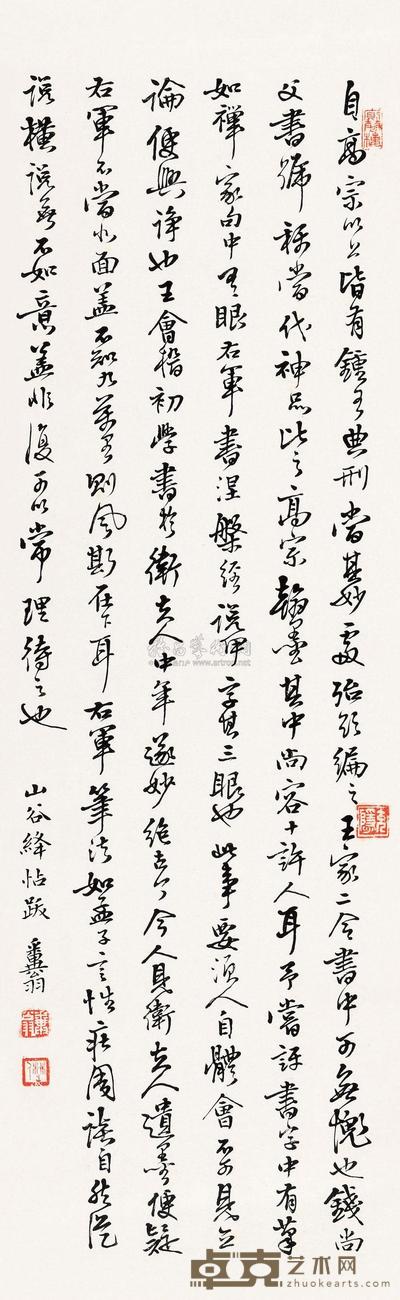 自高宗以上皆有鍾王典刑當其妙處殆欲編之王家二令書中可無愧也錢尚
父書號稱當代神品比之高宗翰墨其中尚容十許人耳予嘗評書字中有筆
如禪家句中有眼右軍書涅槃經說甲字具三眼也此事要須人自體會不可見立
論便興諍也王會稽初學書於衛夫人中年遂妙絕古今人見衛夫人遺墨便疑
右軍不當北面蓋不知九萬里則風斯在下耳右軍筆法如孟子言性莊周談自然從
說橫說無不如意蓋非復可以常理待之也
山谷絳帖跋 糞翁
卓克艺术网
zhuokearts.com